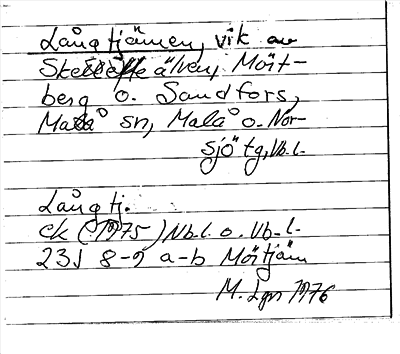 Långtjärnen, vik av
Skellefte älven, Mört-
berg o. Sandfors,
Malå sn, Malå o. Nor-
sjö tg, Vb.l.
Långtj.
ek (1975) Nb.l. o. Vb.l.
23J 8-9 a-b Mörtjärn
M. Lgn 1976